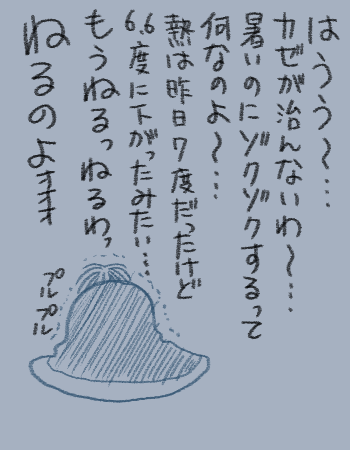 はうぅ〜…
カゼが治んないわ〜…
暑いのにゾクゾクするって
何なのよ〜…
熱は昨日7度だったけど
6.6度に下がったみたい…
もうねるっねるわっ
ねるのよォォォ
プルプル